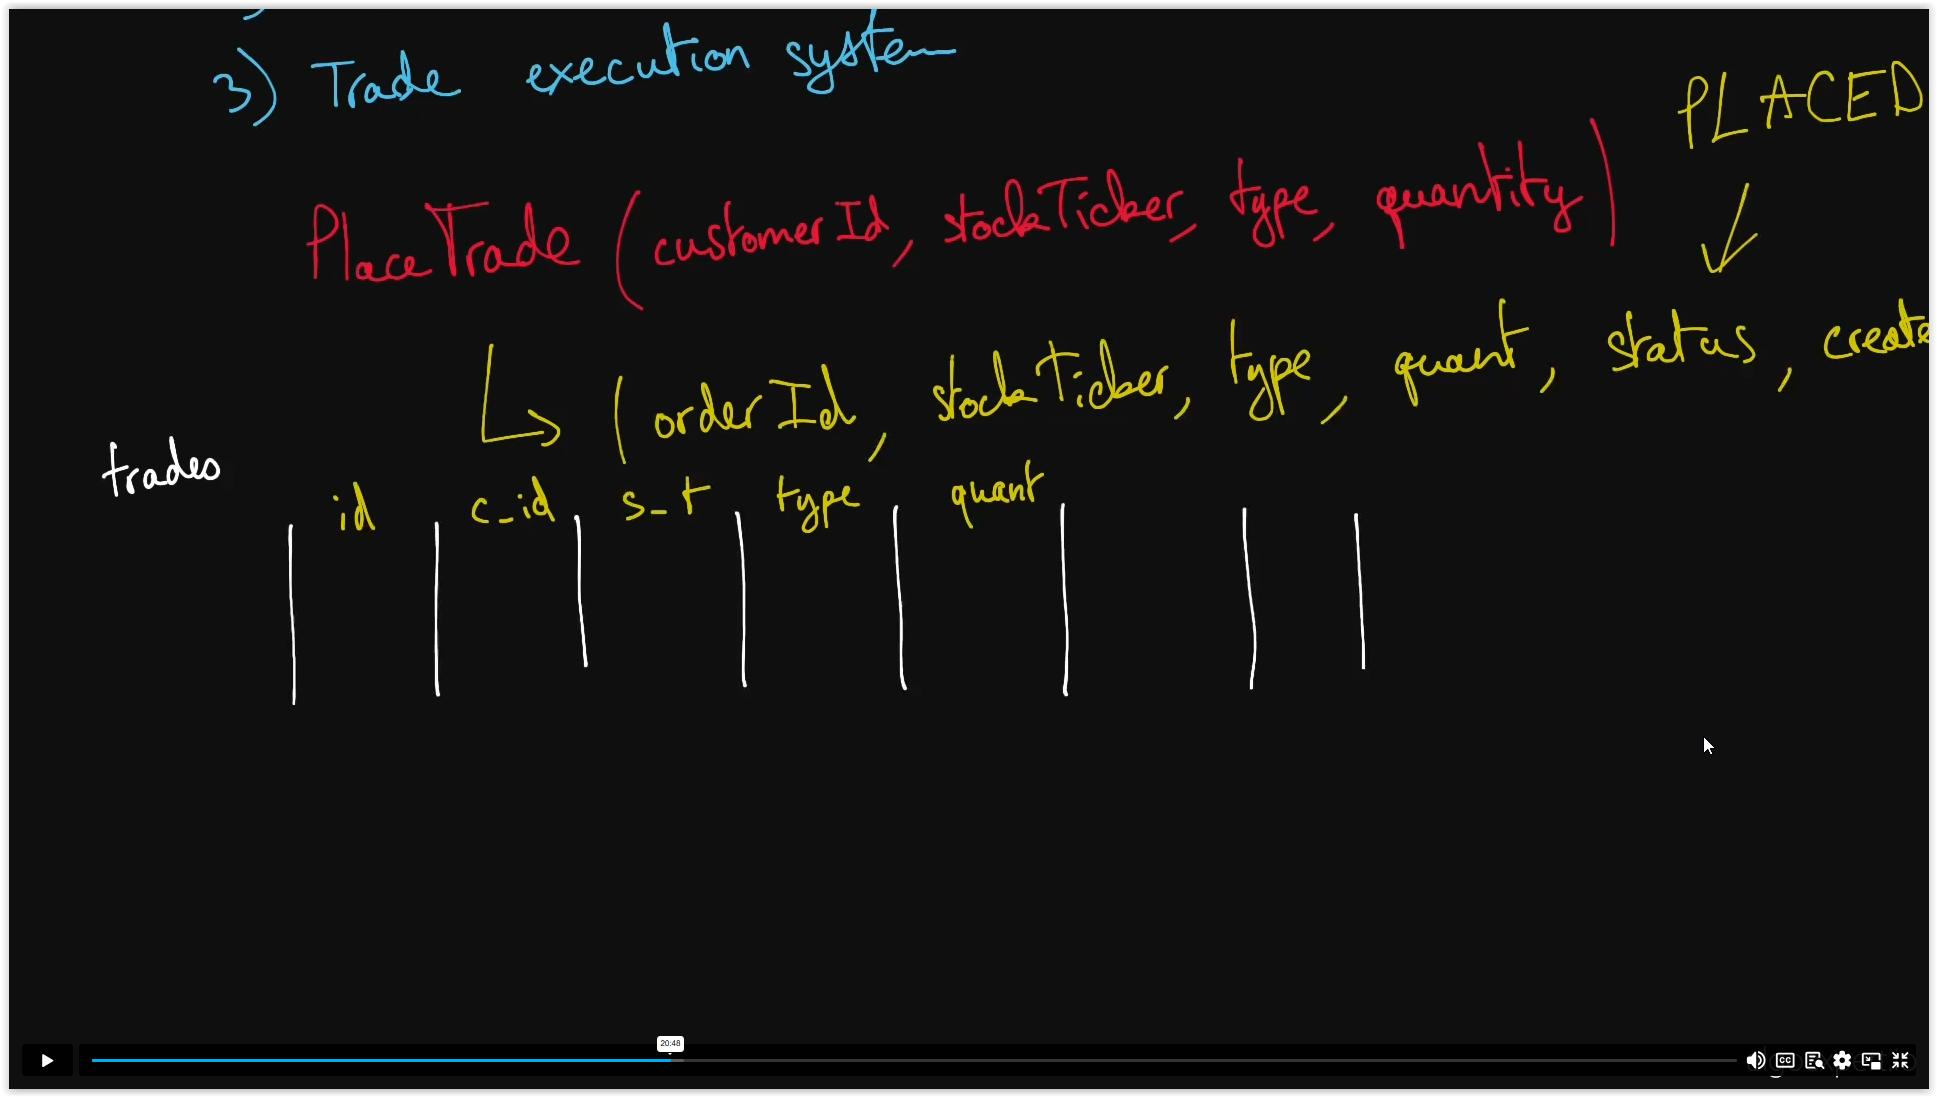 3) Trade execution system
PLACED
PlaceTrade (customerId, stockTicker, type, quantity)
(orderId, stockTicker, type, quant, status, create
trades
id c_id s_t type quant
20:48
CC